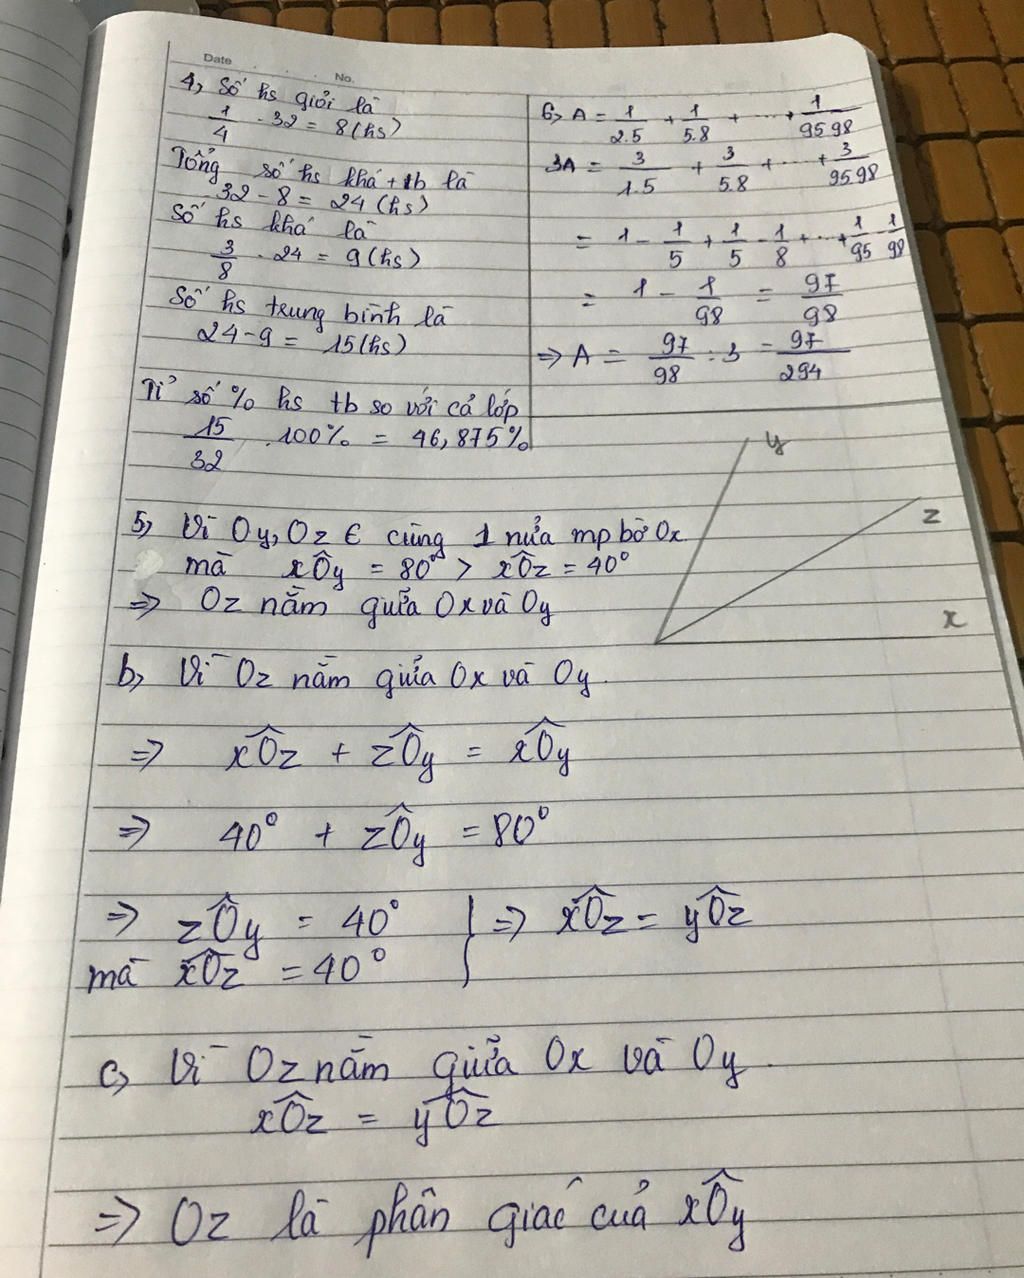 Date . . . No.
4, Số hs giỏi là
1/4 . 32 = 8 (hs)
Tổng số hs khá + tb là
32 - 8 = 24 (hs)
Số hs khá là
3/8 . 24 = 9 (hs)
Số hs trung bình là
24 - 9 = 15 (hs)
Tỉ số % hs tb so với cả lớp
15/32 . 100% = 46,875%
6, A = 1/2.5 + 1/5.8 + ... + 1/95 98
3A = 3/1.5 + 3/5.8 + ... + 3/95 98
= 1 - 1/5 + 1/5 - 1/8 + ... + 1/95 - 1/98
= 1 - 1/98 = 97/98
=> A = 97/98 : 3 = 97/294
y
z
x
5, Vì Oy, Oz ∈ cùng 1 nửa mp bờ Ox
mà xÔy = 80° > xÔz = 40°
=> Oz nằm giữa Ox và Oy
b, Vì Oz nằm giữa Ox và Oy.
=> xÔz + zÔy = xÔy
=> 40° + zÔy = 80°
=> zÔy = 40° } => xÔz = yÔz
mà xÔz = 40°
c, Vì Oz nằm giữa Ox và Oy.
xÔz = yÔz
=> Oz là phân giác của xÔy